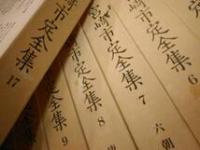 崎市定全集 17
市定全集 9
崎市定全集 8
宮崎市定全集 7
崎市定全集 6
六朝